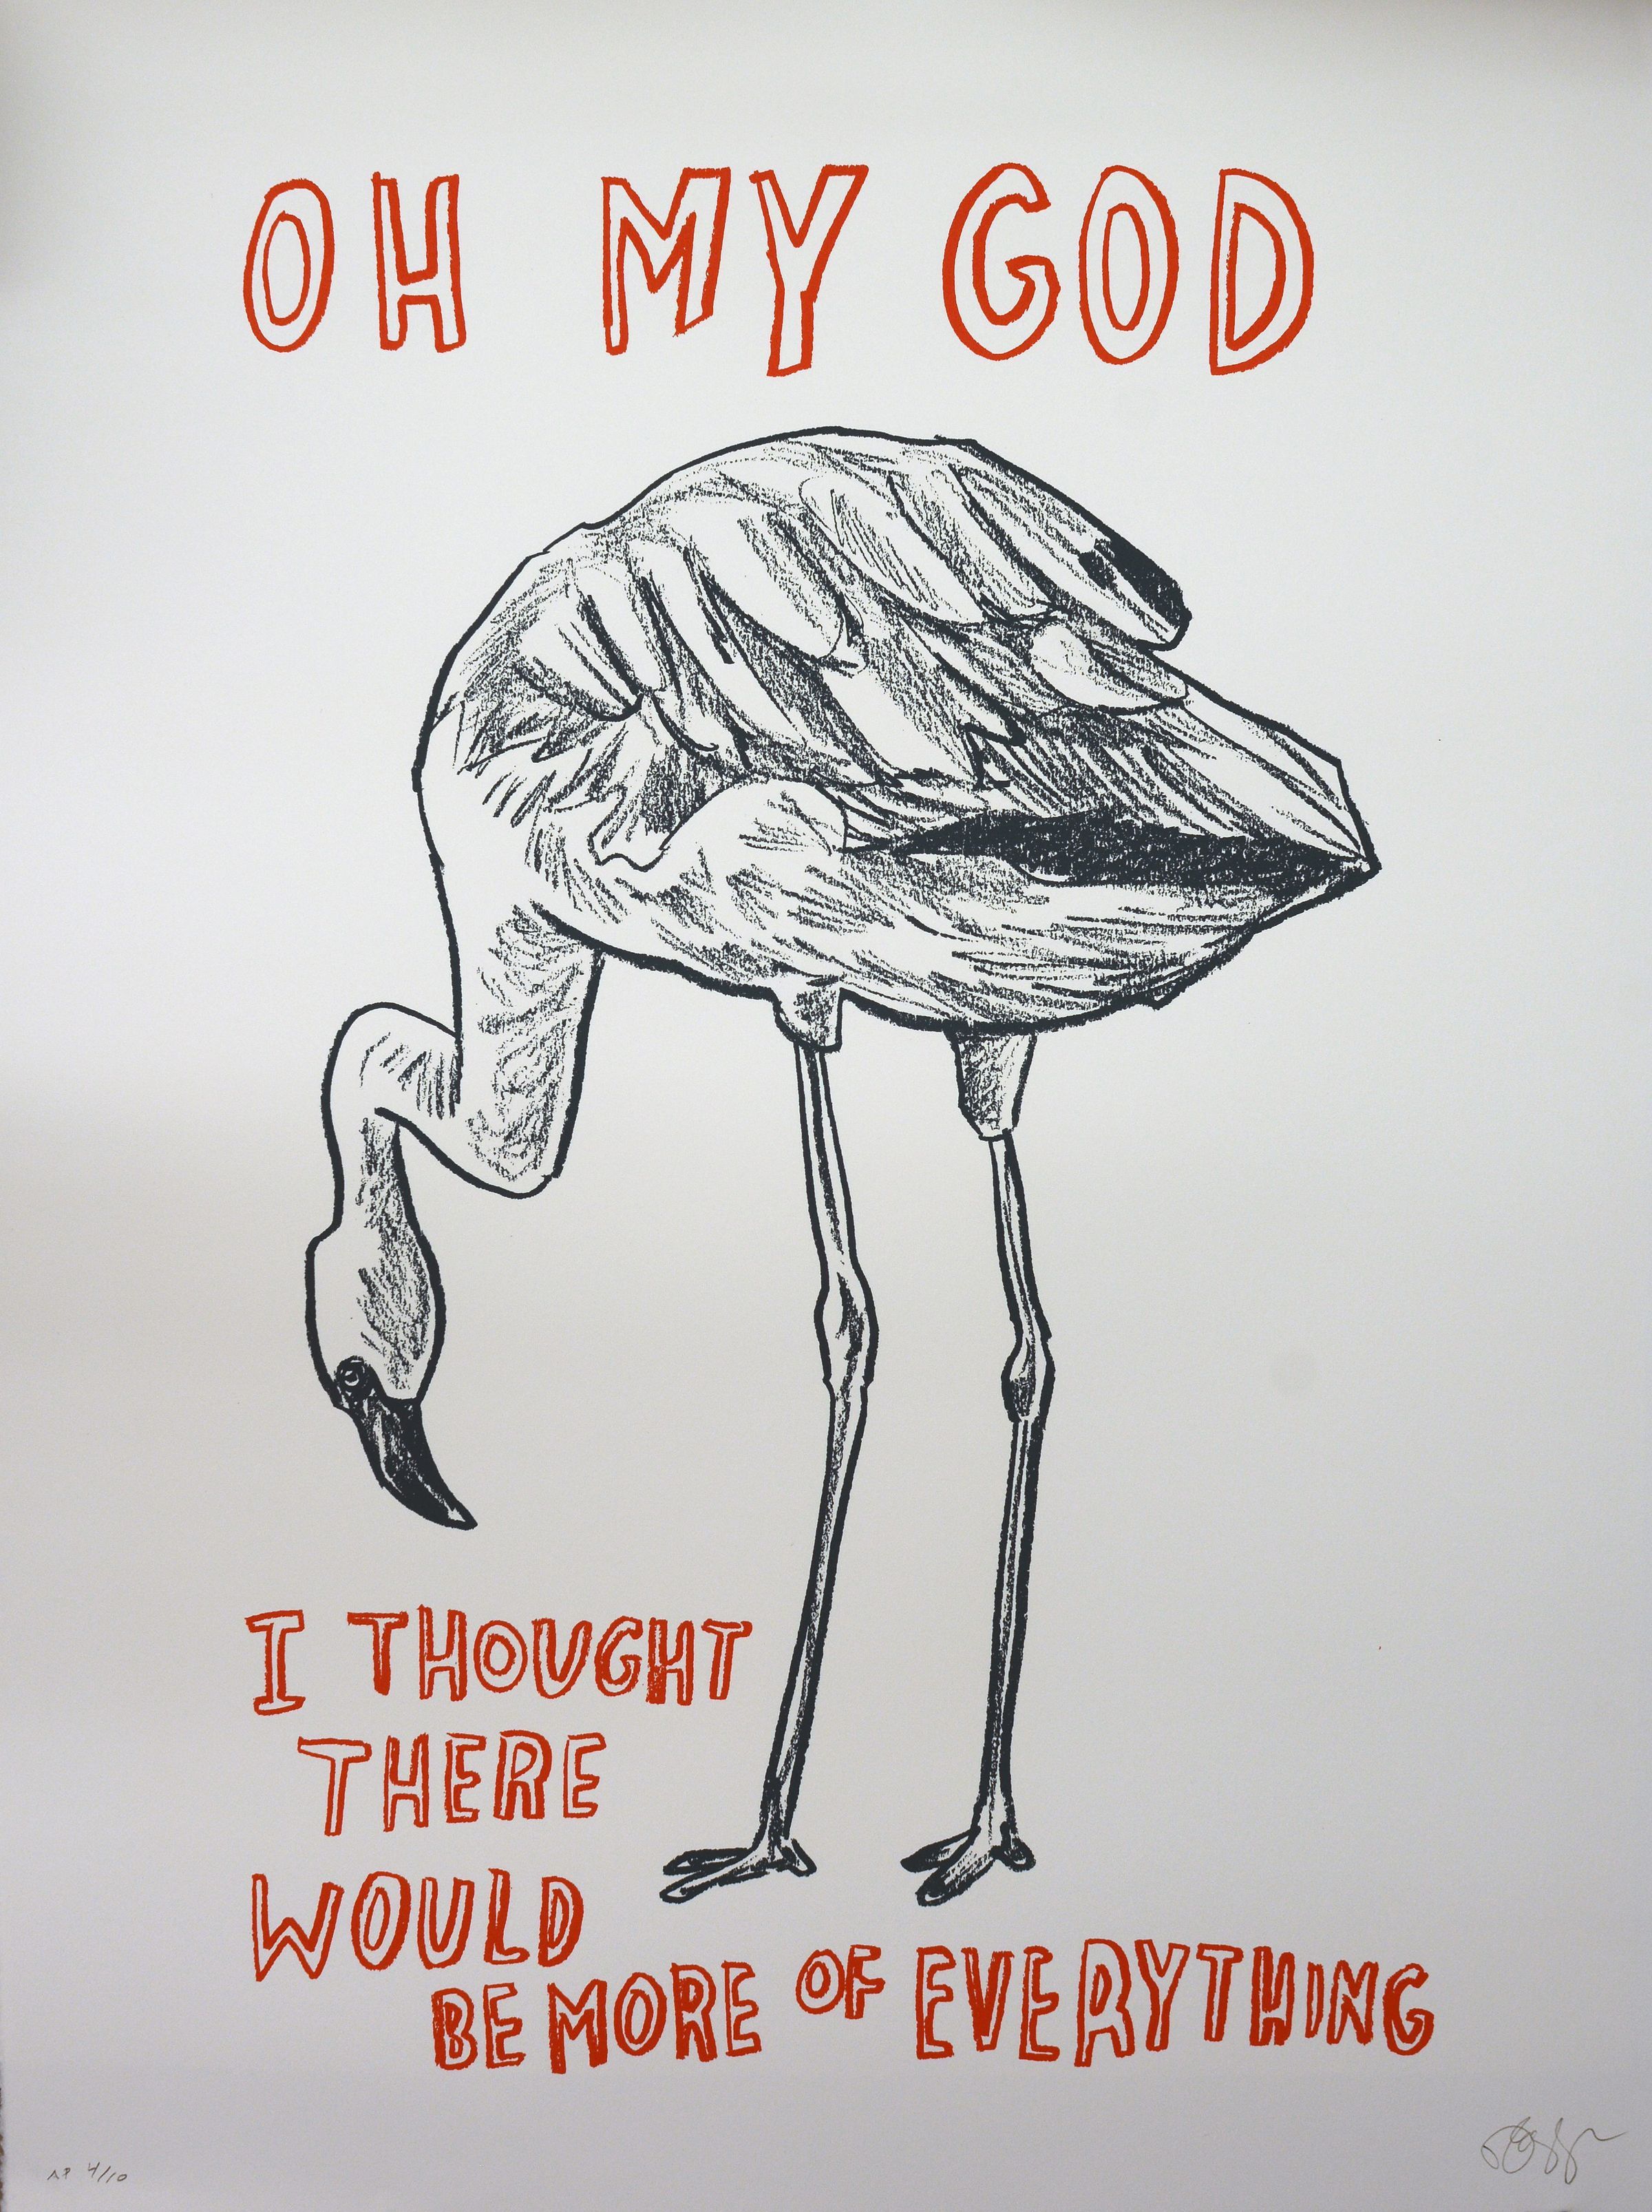 OH MY GOD
I THOUGHT
THERE
WOULD
BE MORE OF EVERYTHING
AP 4/10